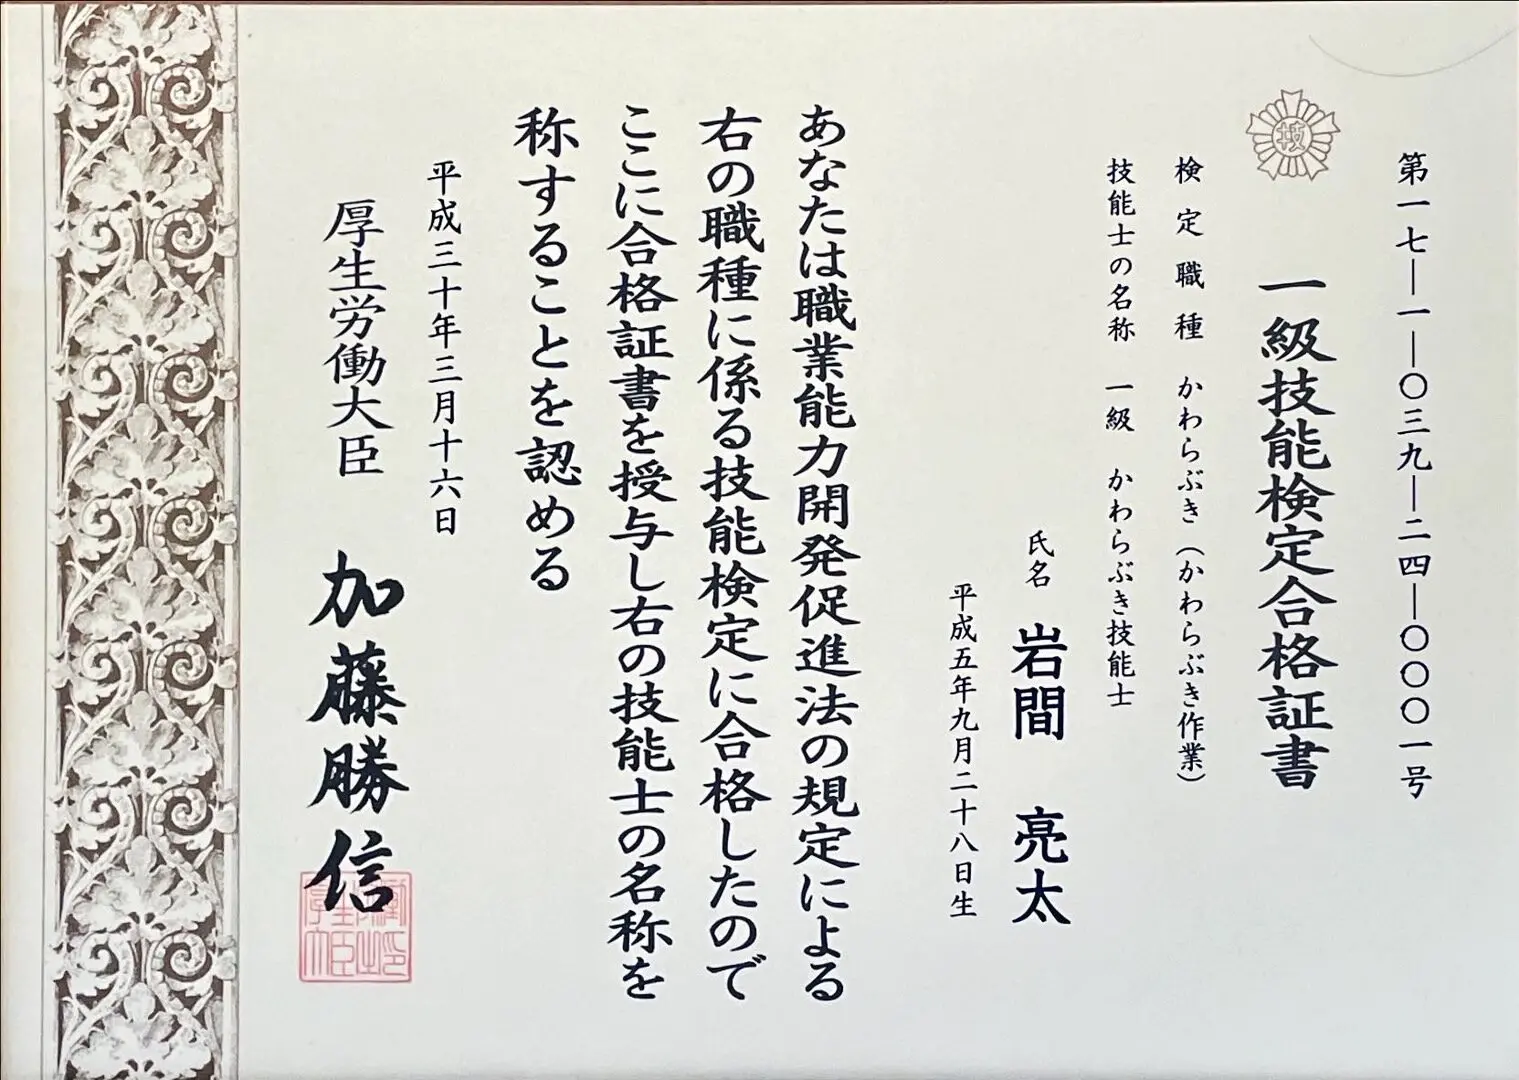 第一七―一―〇三九―二四―〇〇〇一号
技
一級技能検定合格証書
検定職種 かわらぶき（かわらぶき作業）
技能士の名称 一級 かわらぶき技能士
氏名 岩間 亮太
平成五年九月二十八日生
あなたは職業能力開発促進法の規定による
右の職種に係る技能検定に合格したので
ここに合格証書を授与し右の技能士の名称を
称することを認める
平成三十年三月十六日
厚生労働大臣 加藤勝信